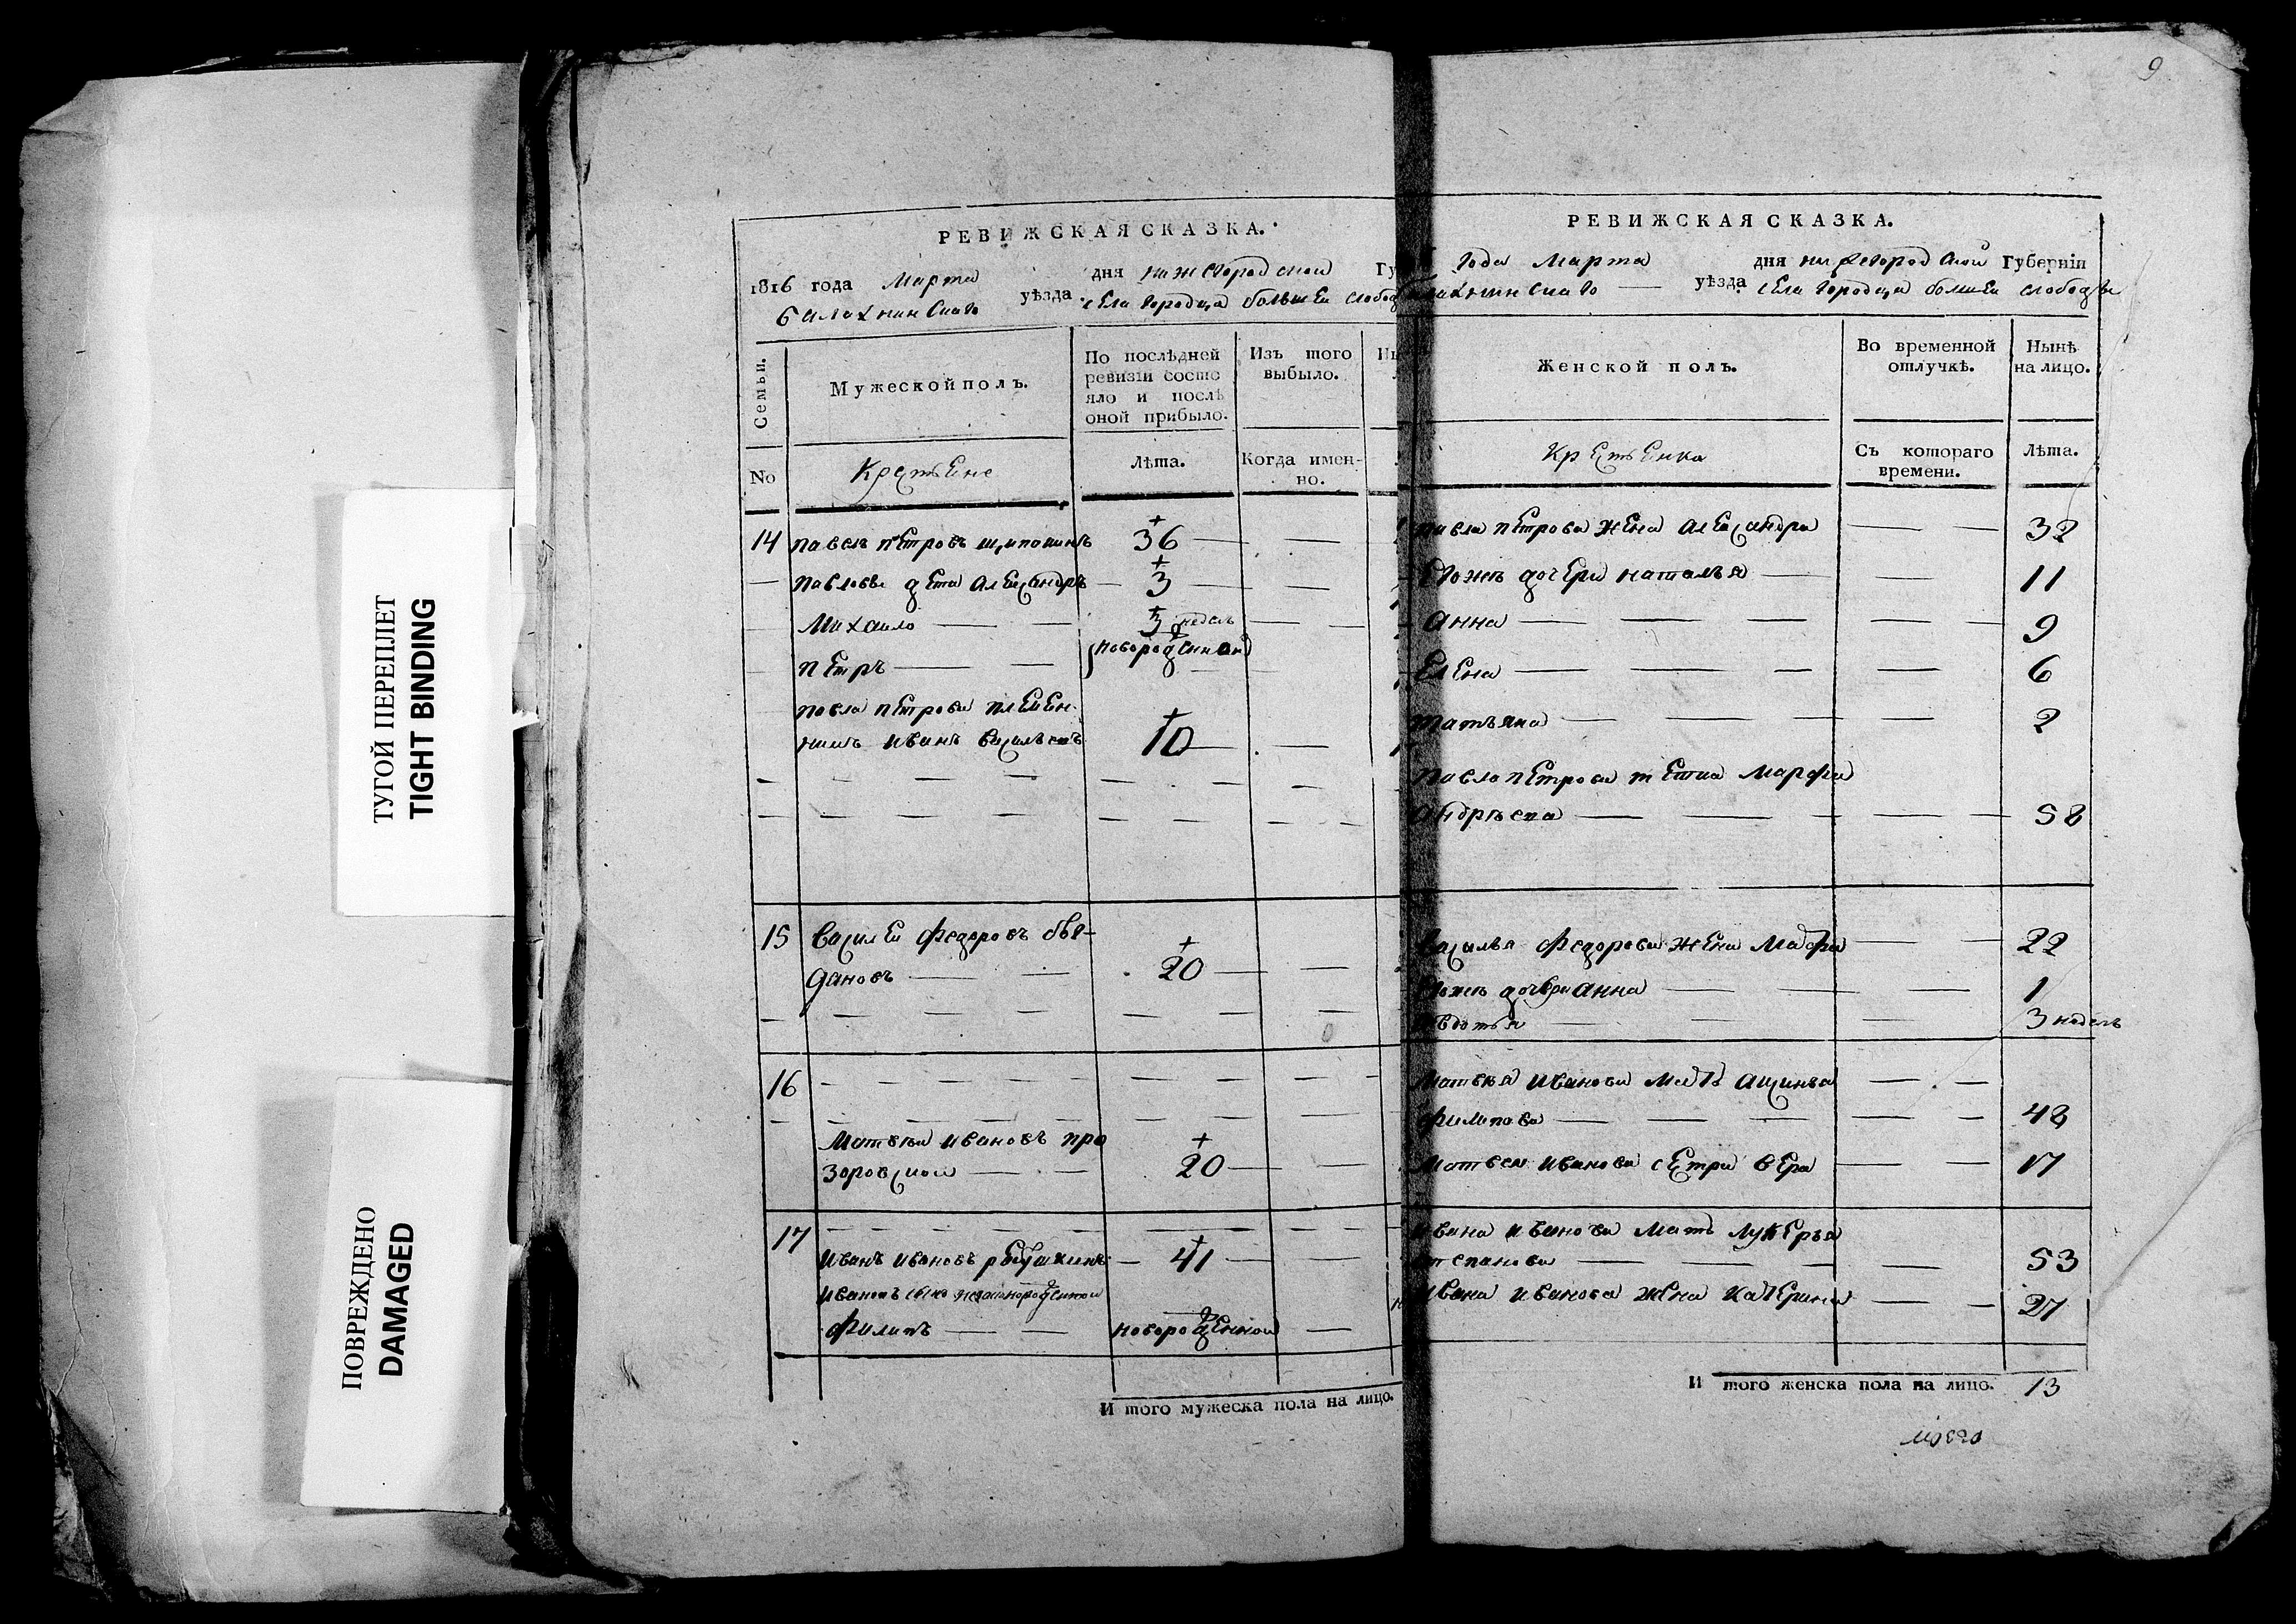 ТУГОЙ ПЕРЕПЛЕТ
TIGHT BINDING
ПОВРЕЖДЕНО
DAMAGED
РЕВИЖСКАЯ СКАЗКА.
1816 года Марта дня нижегородской Гу
балахнинскаго уѣзда села городца большеи слобод
Семьи.
Мужеской полъ.
По послѣдней
ревизіи состо
яло и послѣ
оной прибыло.
Изъ того
выбыло.
No
Крстьяне
Лѣта.
Когда имен-
но.
14 павелъ петровъ 36
павловы дети александръ 3
Михаило 3 недель
петръ новорожденнои
павла петрова племен-
никъ иванъ васильевъ 10
15 василеи федоровъ
дановъ 20
16
Матвеи ивановъ про
зоровскои 20
17
иванъ ивановъ 41
ивановъ сынъ
филипъ новорожденнои
И того мужеска пола на лицо.
9
РЕВИЖСКАЯ СКАЗКА.
года Марта дня нижегородскои Губерніи
уѣзда села городца большеи слободы
Женской полъ.
Во временной
отлучкѣ.
Нынѣ
на лицо.
Крстьянка
Съ котораго
времени.
Лѣта.
павла петрова жена александра 32
евожъ дочери наталья 11
анна 9
елена 6
татьяна 2
павла петрова тетка Марфа
андрѣева 58
василья федорова жена Марфа 22
евожъ дочери анна 1
авдотья 3 недель
Матвея иванова мать аксинья
филипова 48
Матвея иванова сестра вера 17
ивана иванова мать лукерья
степанова 53
ивана иванова жена катерина 27
И того женска пола на лицо. 13